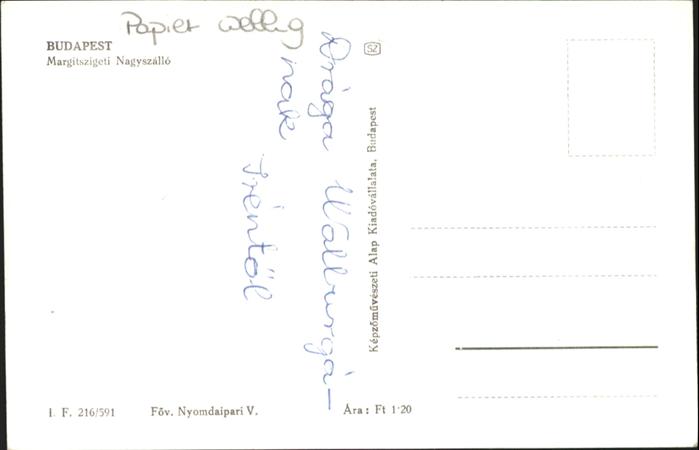 Papier wellig
BUDAPEST
Margitszigeti Nagyszálló
Drága Walburgá-
nak
Iréntől
SZ
Képzőművészeti Alap Kiadóvállalata, Budapest
I. F. 216/591
Főv. Nyomdaipari V.
Ára: Ft 1·20